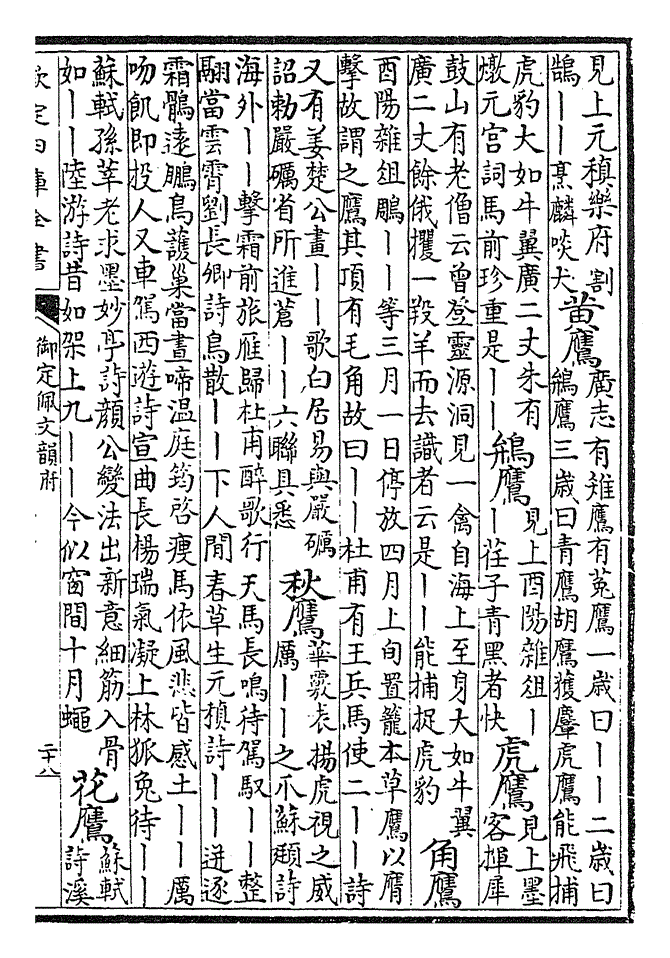 見上元稹樂府割
鵠——烹麟啖犬
黄鷹
廣志有雉鷹有菟鷹一歳曰——二歳曰
鵧鷹三歳曰青鷹胡鷹獲麞虎鷹能飛捕
虎豹大如牛翼廣二丈朱有
燉元宫詞馬前珍重是——
鵧鷹
見上酉陽雜俎—
—荏子青黑者快
虎鷹
見上墨
客揮犀
鼓山有老僧云曾登靈源洞見一禽自海上至身大如牛翼
廣二丈餘俄攫一羖羊而去識者云是——能捕捉虎豹
角鷹
酉陽雜俎鵰——等三月一日停放四月上旬置籠本草鷹以膺
擊故謂之鷹其頂有毛角故曰——杜甫有王兵馬使二——詩
又有姜楚公畫——歌白居易與嚴礪
詔勅嚴礪省所進蒼——六聯具悉
秋鷹
華覈表揚虎視之威
厲——之爪蘇頲詩
海外——擊霜前旅雁歸杜甫醉歌行天馬長鳴待駕馭——整
翮當雲霄劉長卿詩鳥散——下人閒春草生元稹詩——迸逐
霜鶻逺鵬鳥護巢當晝啼温庭筠啓瘦馬依風悲皆感土——厲
吻飢即投人又車駕西遊詩宣曲長楊瑞氣凝上林狐兔待——
蘇軾孫莘老求墨妙亭詩顔公變法出新意細筋入骨
如——陸游詩昔如架上九——今似窗間十月蠅
花鷹
蘇軾
詩溪
欽定四庫全書
御定佩文韻府
二十八